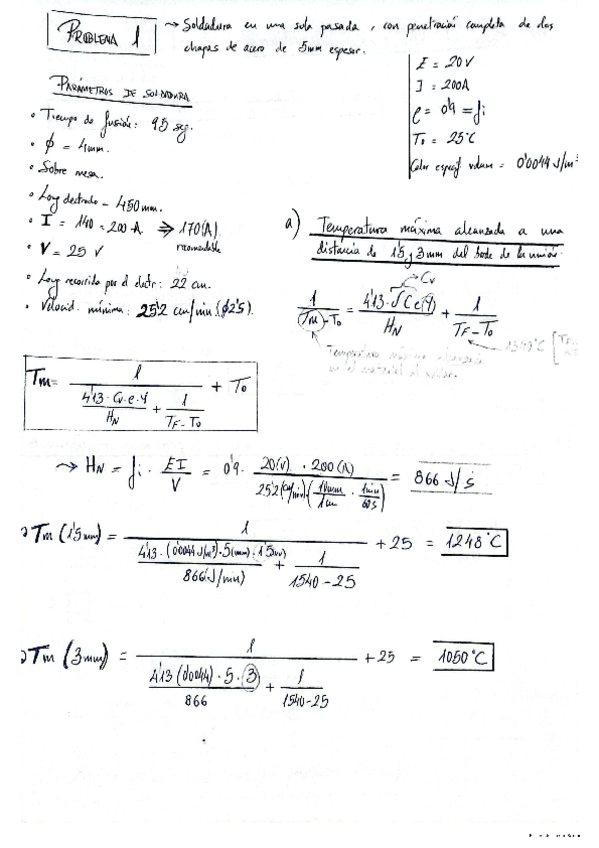 PROBLEMA 1
→ Soldadura en una sola pasada, con penetración completa de dos
chapas de acero de 5mm espesor.
E = 20V
I = 200A
e = 0'9 = fi
T₀ = 25°C
Calor específ volum = 0'0044 J/m³
PARÁMETROS DE SOLDADURA
• Tiempo de fusión: 95 seg.
• ϕ = 4mm.
• Sobre mesa.
• Long electrodo - 450mm.
• I = 140 - 200 A. ⇒ 170(A).
recomendable
• V = 25 V
• Long recorrida por el electr: 22 cm.
• Velocid. mínima: 25'2 cm/min (ϕ2'5).
a) Temperatura máxima alcanzada a una
distancia de 1'5 y 3mm del borde de la unión.
Cv
1/(Tm-T₀) = 4'13·ʃC e Y/HN + 1/(TF-T₀)
1549°C
Temperatura máxima
Tm = 1/(4'13·Cv·e·Y/HN + 1/(TF-T₀)) + T₀
→ HN = fi · EI/V = 0'9 · 20(V)·200(A)/(25'2(cm/min)·(10mm/1cm · 1min/60s)) = 866 J/s
Tm (1'5mm) = 1/(4'13·(0'0044 J/m³)·5(mm)·1'5mm/866(J/mm) + 1/(1540-25)) + 25 = 1248°C
Tm (3mm) = 1/(4'13(0'0044)·5·3/866 + 1/(1540-25)) + 25 = 1050°C